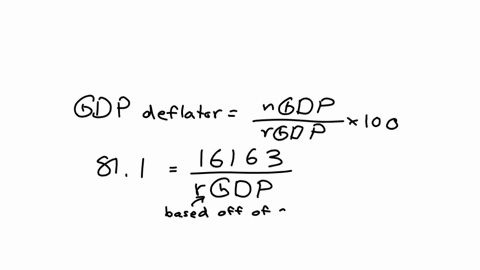 GDP deflator = nGDP / rGDP × 100
81.1 = 16163 / rGDP
based off of